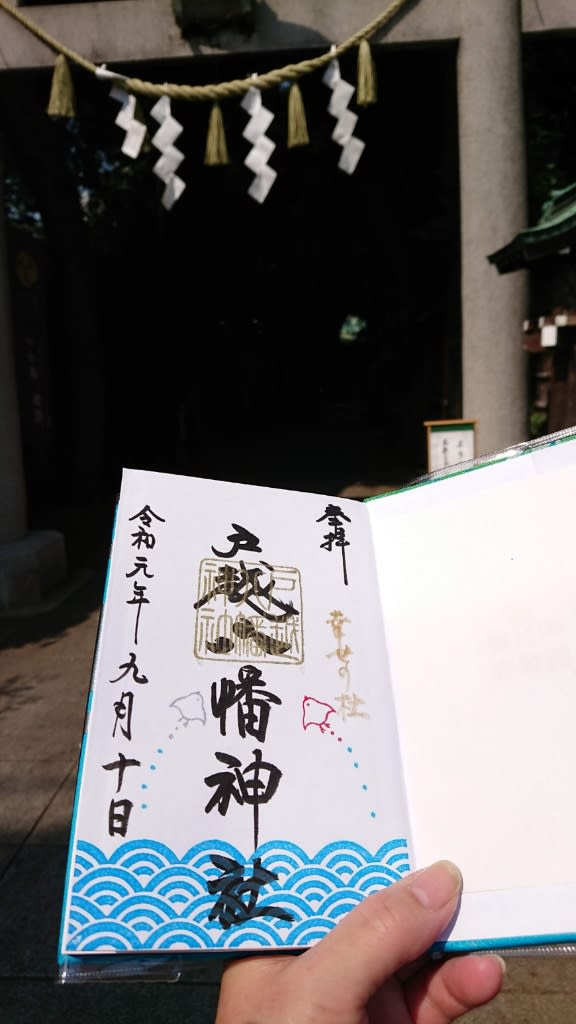 奉拝
幸せの杜
戸越八幡神社
戸越八幡神社
令和元年九月十日